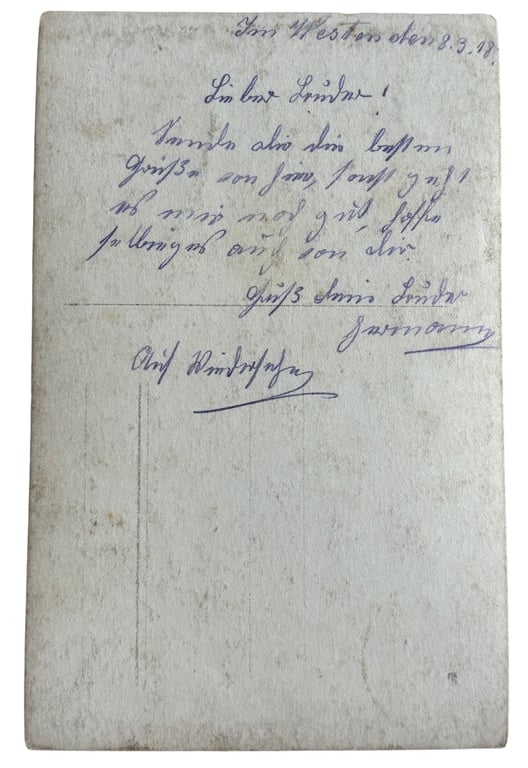 Im Westen den 8.3.18.
Lieber Bruder!
Sende dir die besten
Grüße von hier, sonst geht
es mir noch gut, hoffe
selbiges auch von dir.
Gruß dein Bruder
Hermann
Auf Wiedersehn